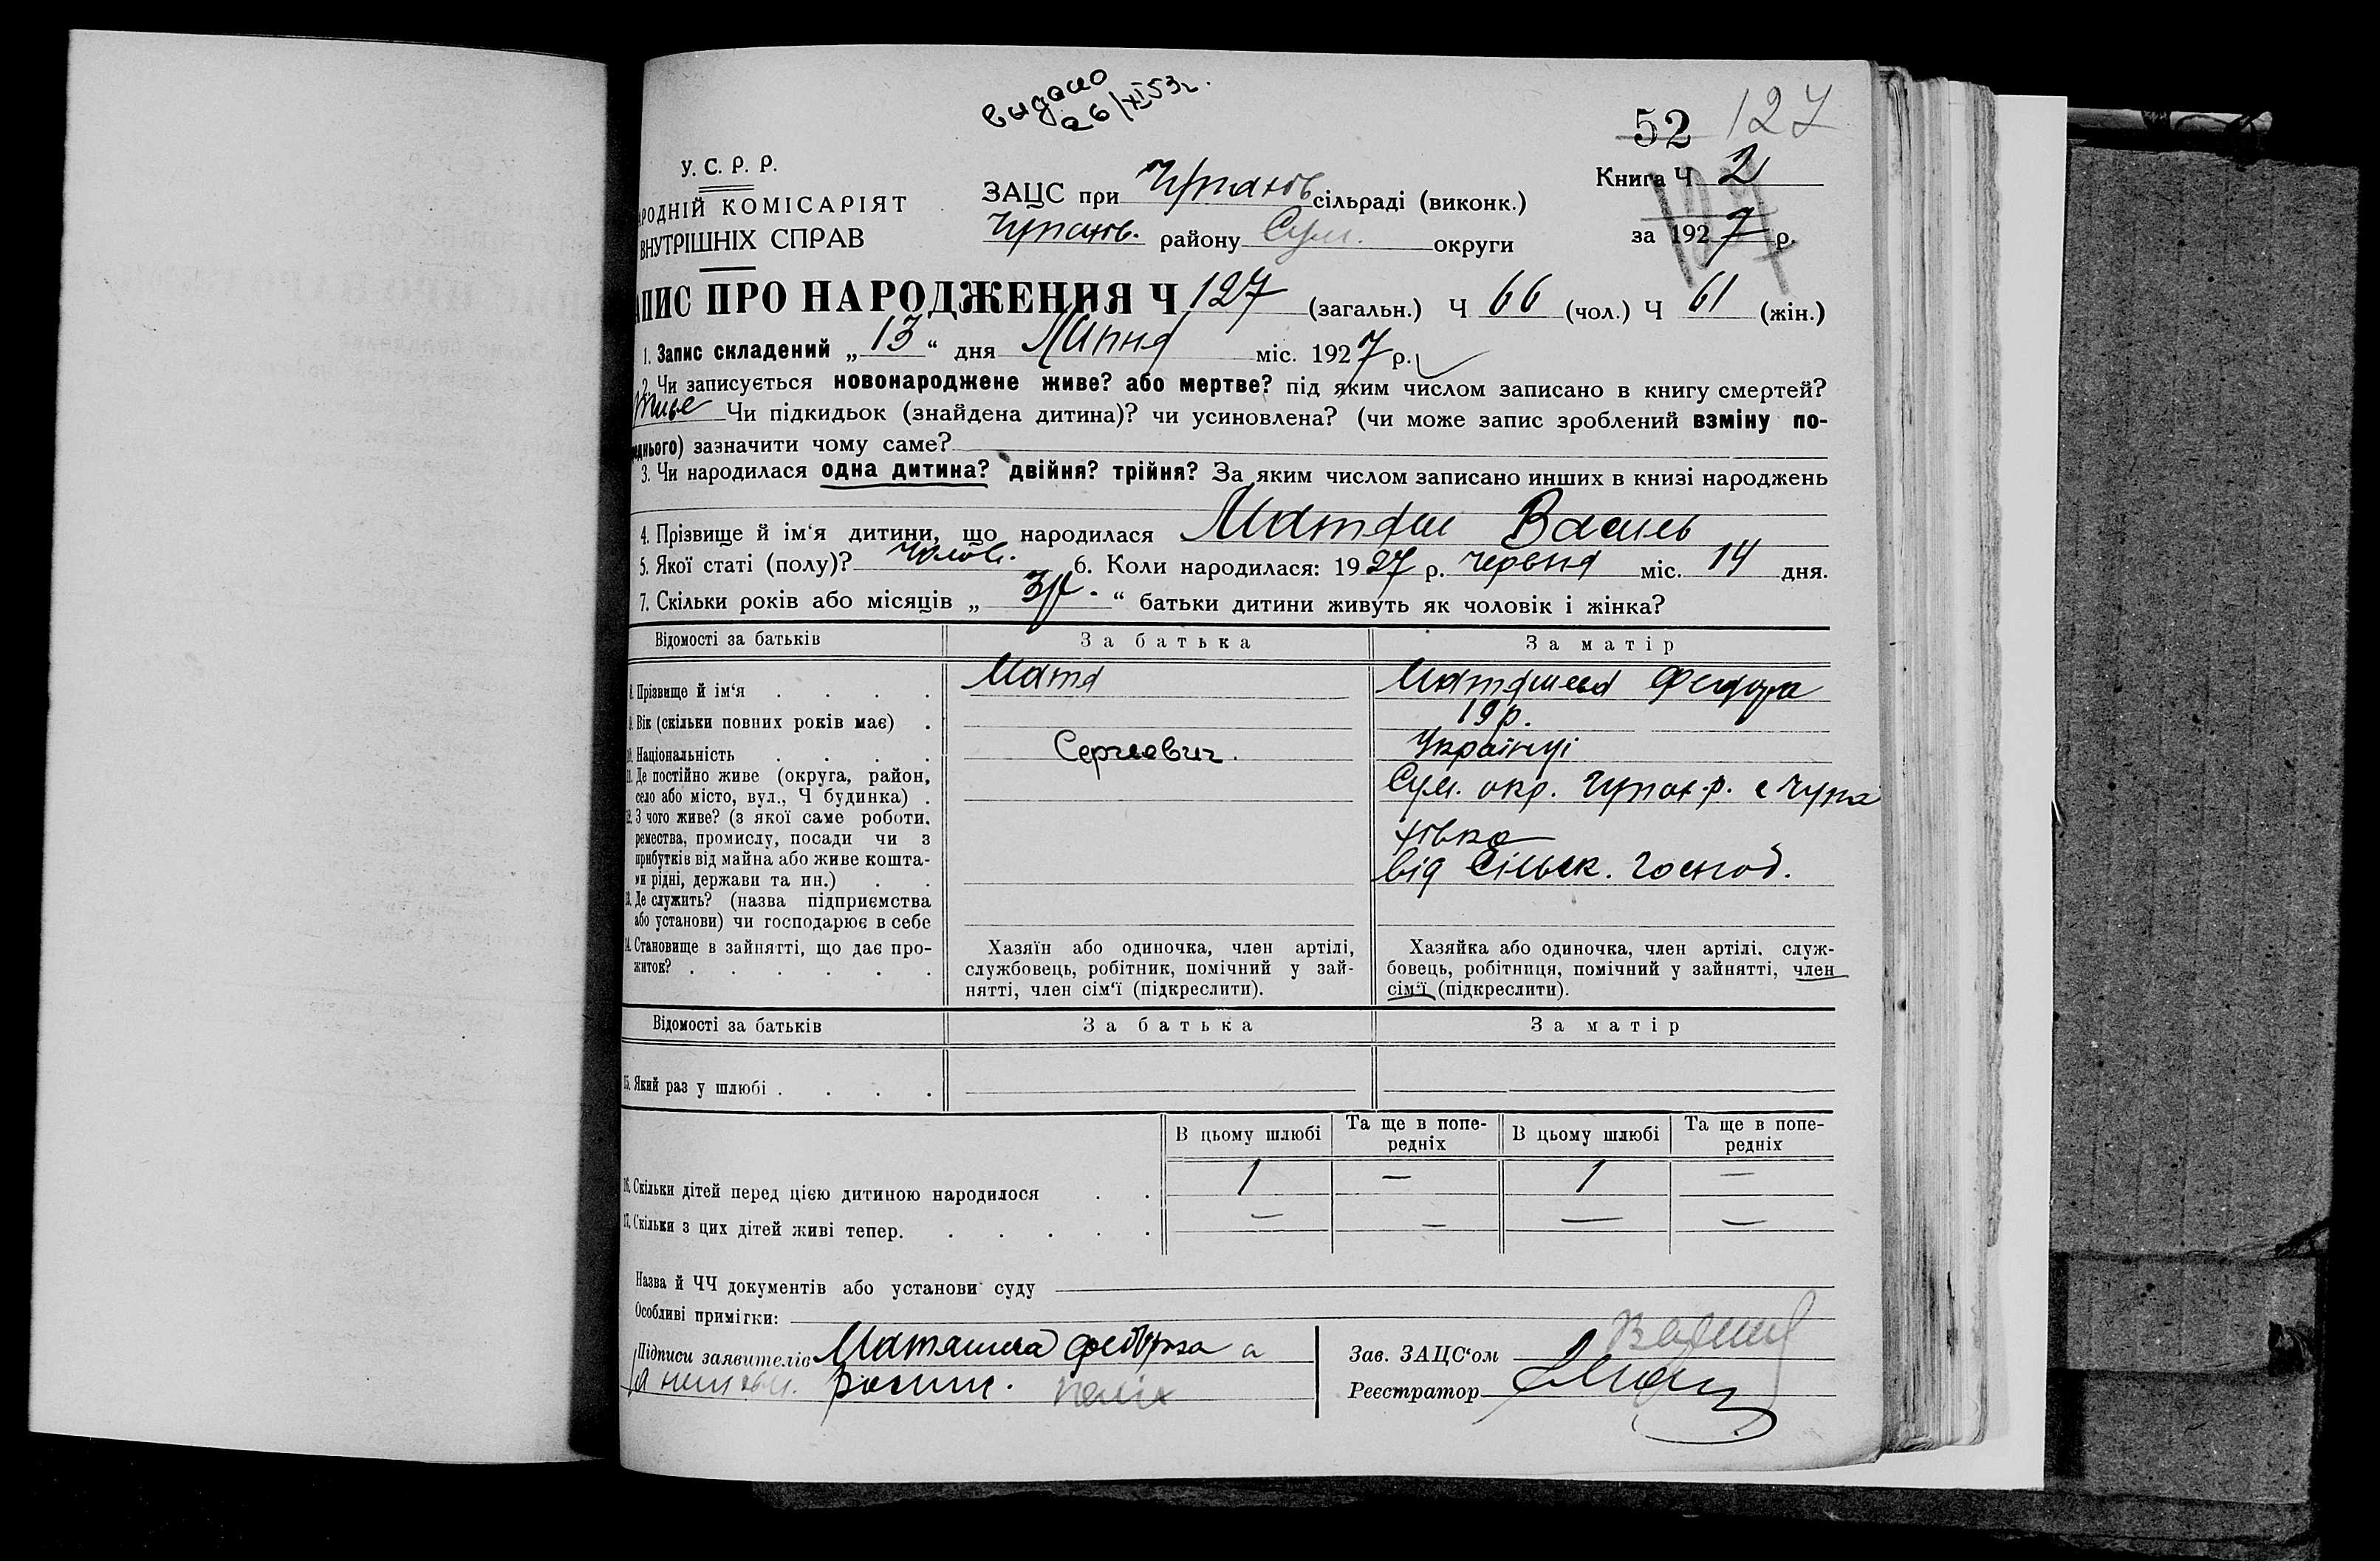 выдано
26/XI 53г.
52 127
У. С. Р. Р.
РОДНІЙ КОМІСАРІЯТ
ВНУТРІШНІХ СПРАВ
ЗАЦС при сільраді (виконк.)
району Сум. округи
Книга Ч 2
за 1927 р.
127
АПИС ПРО НАРОДЖЕННЯ Ч 127 (загальн.) Ч 66 (чол.) Ч 61 (жін.)
1. Запис складений „ 13 “ дня Липня міс. 1927 р.
2. Чи записується новонароджене живе? або мертве? під яким числом записано в книгу смертей?
живе Чи підкидьок (знайдена дитина)? чи усиновлена? (чи може запис зроблений взміну по-
еднього) зазначити чому саме?
3. Чи народилася одна дитина? двійня? трійня? За яким числом записано инших в книзі народжень
4. Прізвище й ім‘я дитини, що народилася Матяш Василь
5. Якої статі (полу)? чолов. 6. Коли народилася: 1927 р. червня міс. 14 дня.
7. Скільки років або місяців „ 3р. “ батьки дитини живуть як чоловік і жінка?
Відомості за батьків За батька За матір
8. Прізвище й ім‘я Матя Матяшева Федора
9. Вік (скільки повних років має) 19р.
10. Національність Сергиевич. Українці
11. Де постійно живе (округа, район, село або місто, вул., Ч будинка) Сум. окр. Чупах. р. с Чупа
хівка
12. З чого живе? (з якої саме роботи, ремества, промислу, посади чи з прибутків від майна або живе кошта-
ми рідні, держави та ин.) від сільск. господ.
13. Де служить? (назва підприємства
або установи) чи господарює в себе
14. Становище в зайнятті, що дає про-
житок?
Хазяїн або одиночка, член артілі,
службовець, робітник, помічний у зай-
нятті, член сім‘ї (підкреслити).
Хазяйка або одиночка, член артілі, служ-
бовець, робітниця, помічний у зайнятті, член
сім‘ї (підкреслити).
Відомості за батьків За батька За матір
15. Який раз у шлюбі
В цьому шлюбі Та ще в попе-
редніх В цьому шлюбі Та ще в попе-
редніх
16. Скільки дітей перед цією дитиною народилося 1 — 1 —
17. Скільки з цих дітей живі тепер. — — — —
Назва й ЧЧ документів або установи суду
Особливі примітки:
Підписи заявителів Матяшева
Зав. ЗАЦС‘ом
Реєстратор